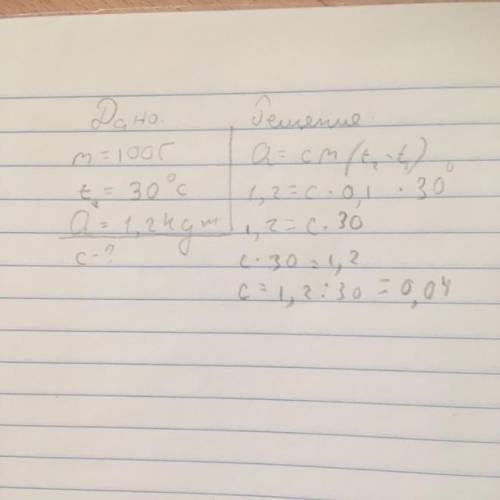 Дано.
m = 100г
t₂ = 30°C
Q = 1,2кдж
c - ?
Решение
Q = cm(t₂ - t₁)
1,2 = c · 0,1 · 30°
1,2 = c · 30
c · 30 = 1,2
c = 1,2 : 30 = 0,04